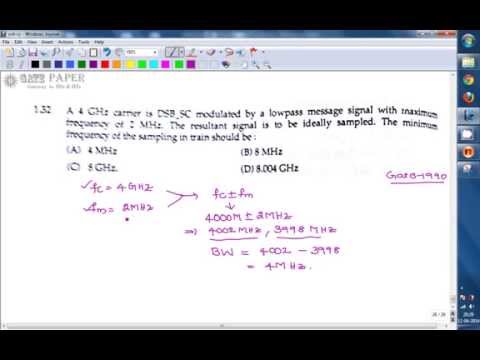 GATE PAPER
Gateway to IITs & IISc
1.32 A 4 GHz carrier is DSB_SC modulated by a lowpass message signal with maximum
frequency of 2 MHz. The resultant signal is to be ideally sampled. The minimum
frequency of the sampling in train should be :
(A) 4 MHz (B) 8 MHz
(C) 8 GHz. (D) 8.004 GHz
Gate-1990
fc = 4 GHz
fm = 2MHz
fc ± fm
4000M ± 2MHz
⇒ 4002 MHz, 3998 MHz
BW = 4002 - 3998
= 4MHz.